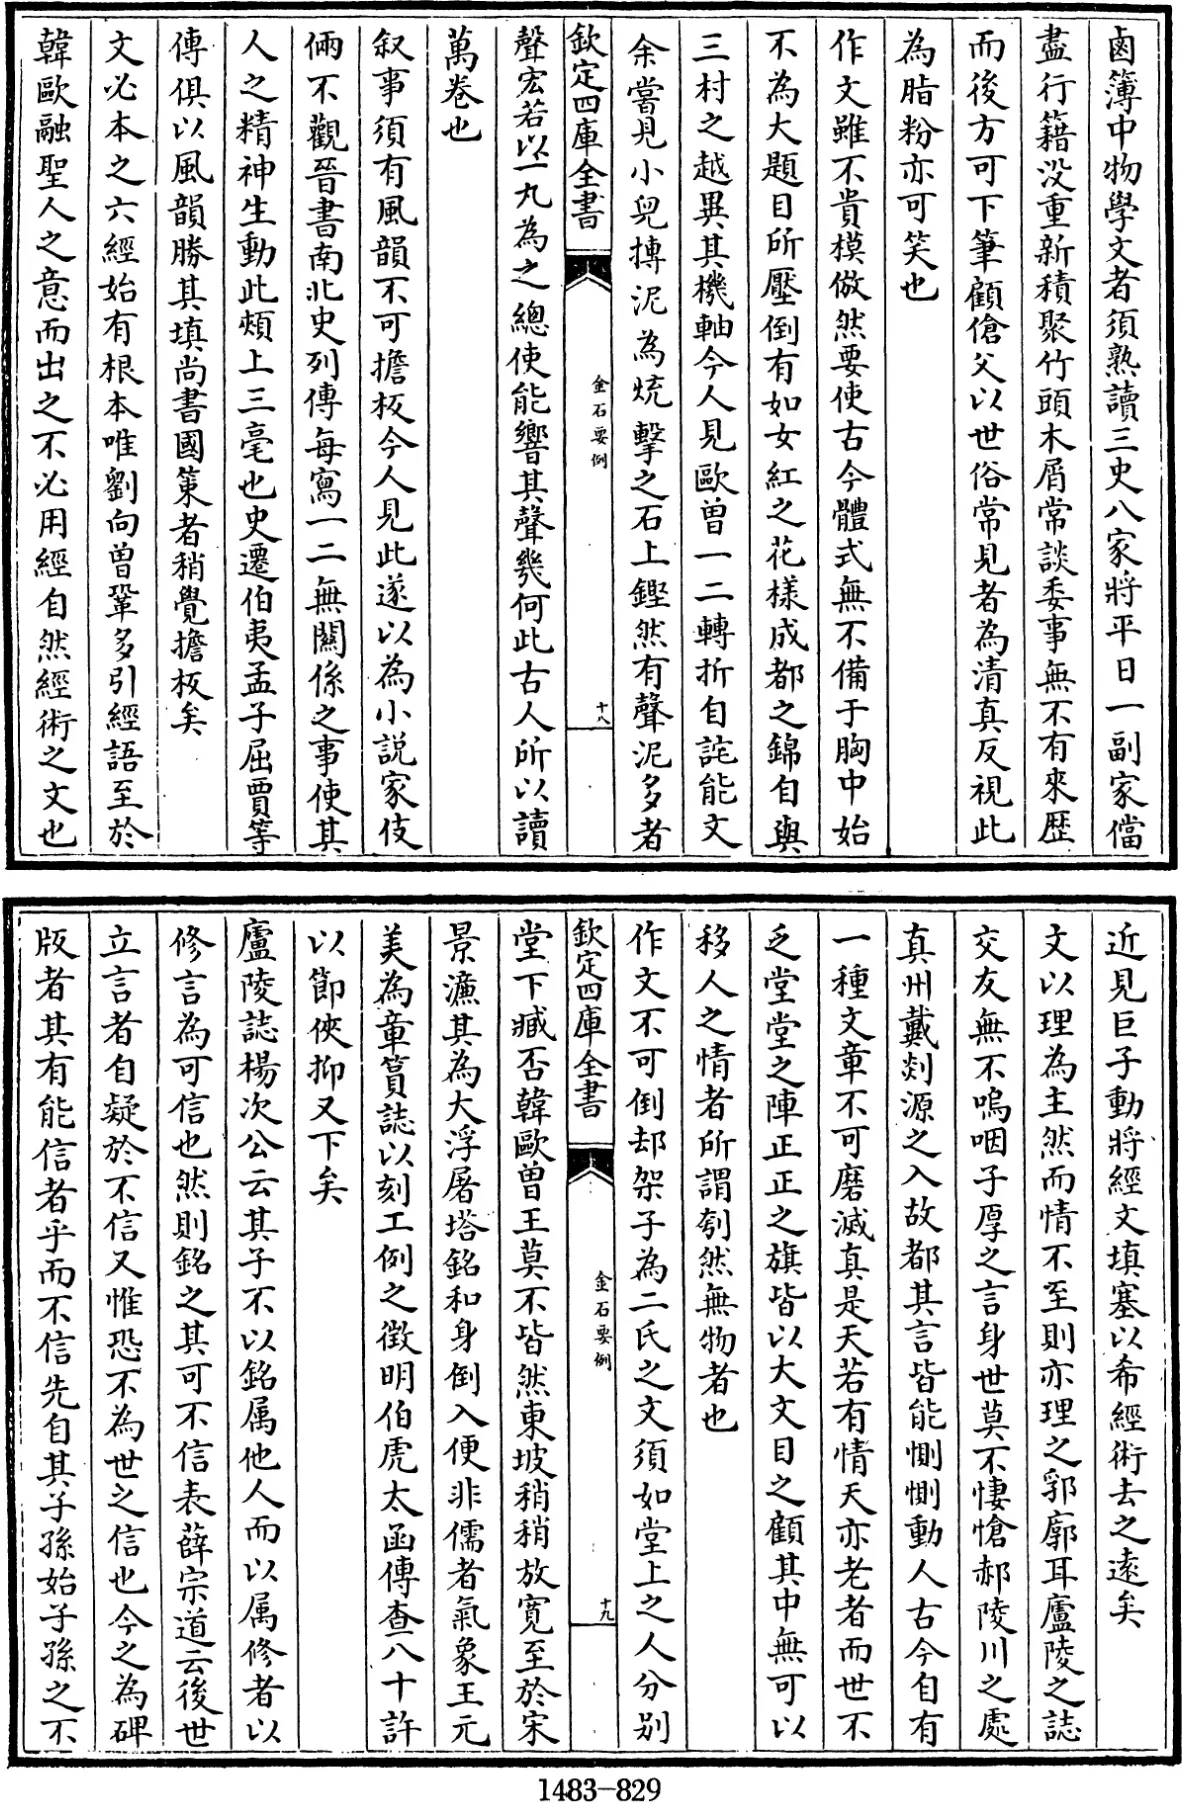 鹵簿中物學文者須熟讀三史八家將平日一副家儅
盡行籍没重新積聚竹頭木屑常談委事無不有來歴
而後方可下筆顧傖父以世俗常見者為清真反視此
為脂粉亦可笑也
作文雖不貴模倣然要使古今體式無不備于胸中始
不為大題目所壓倒有如女紅之花様成都之錦自與
三村之越異其機軸今人見歐曾一二轉折自詫能文
余嘗見小兒摶泥為炕擊之石上鏗然有聲泥多者
欽定四庫全書
金石要例
十八
聲宏若以一丸為之總使能響其聲幾何此古人所以讀
萬卷也
叙事須有風韻不可擔板今人見此遂以為小説家伎
倆不觀晉書南北史列傳每寫一二無關係之事使其
人之精神生動此頰上三毫也史遷伯夷孟子屈賈等
傳俱以風韻勝其填尚書國策者稍覺擔板矣
文必本之六經始有根本唯劉向曾鞏多引經語至於
韓歐融聖人之意而出之不必用經自然經術之文也
近見巨子動將經文填塞以希經術去之遠矣
文以理為主然而情不至則亦理之郛廓耳廬陵之誌
交友無不嗚咽子厚之言身世莫不悽愴郝陵川之處
真州戴剡源之入故都其言皆能惻惻動人古今自有
一種文章不可磨滅真是天若有情天亦老者而世不
乏堂堂之陣正正之旗皆以大文目之顧其中無可以
移人之情者所謂刳然無物者也
作文不可倒却架子為二氏之文須如堂上之人分别
欽定四庫全書
金石要例
十九
堂下臧否韓歐曾王莫不皆然東坡稍稍放寛至於宋
景濂其為大浮屠塔銘和身倒入便非儒者氣象王元
美為章篔誌以刻工例之徴明伯虎太函傳查八十許
以節俠抑又下矣
廬陵誌楊次公云其子不以銘属他人而以属修者以
修言為可信也然則銘之其可不信表薛宗道云後世
立言者自疑於不信又惟恐不為世之信也今之為碑
版者其有能信者乎而不信先自其子孫始子孫之不
1483-829